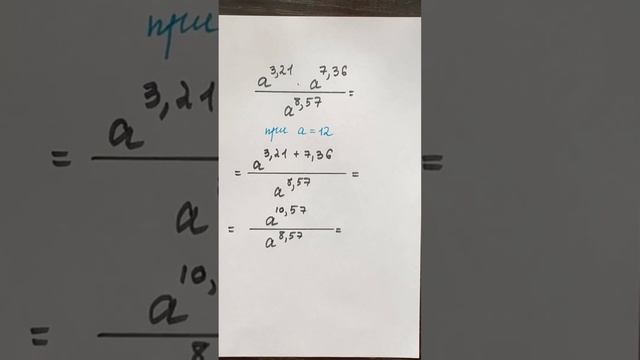 a^3,21 · a^7,36 / a^8,57 =
при a = 12
= a^3,21 + 7,36 / a^8,57 =
= a^10,57 / a^8,57 =